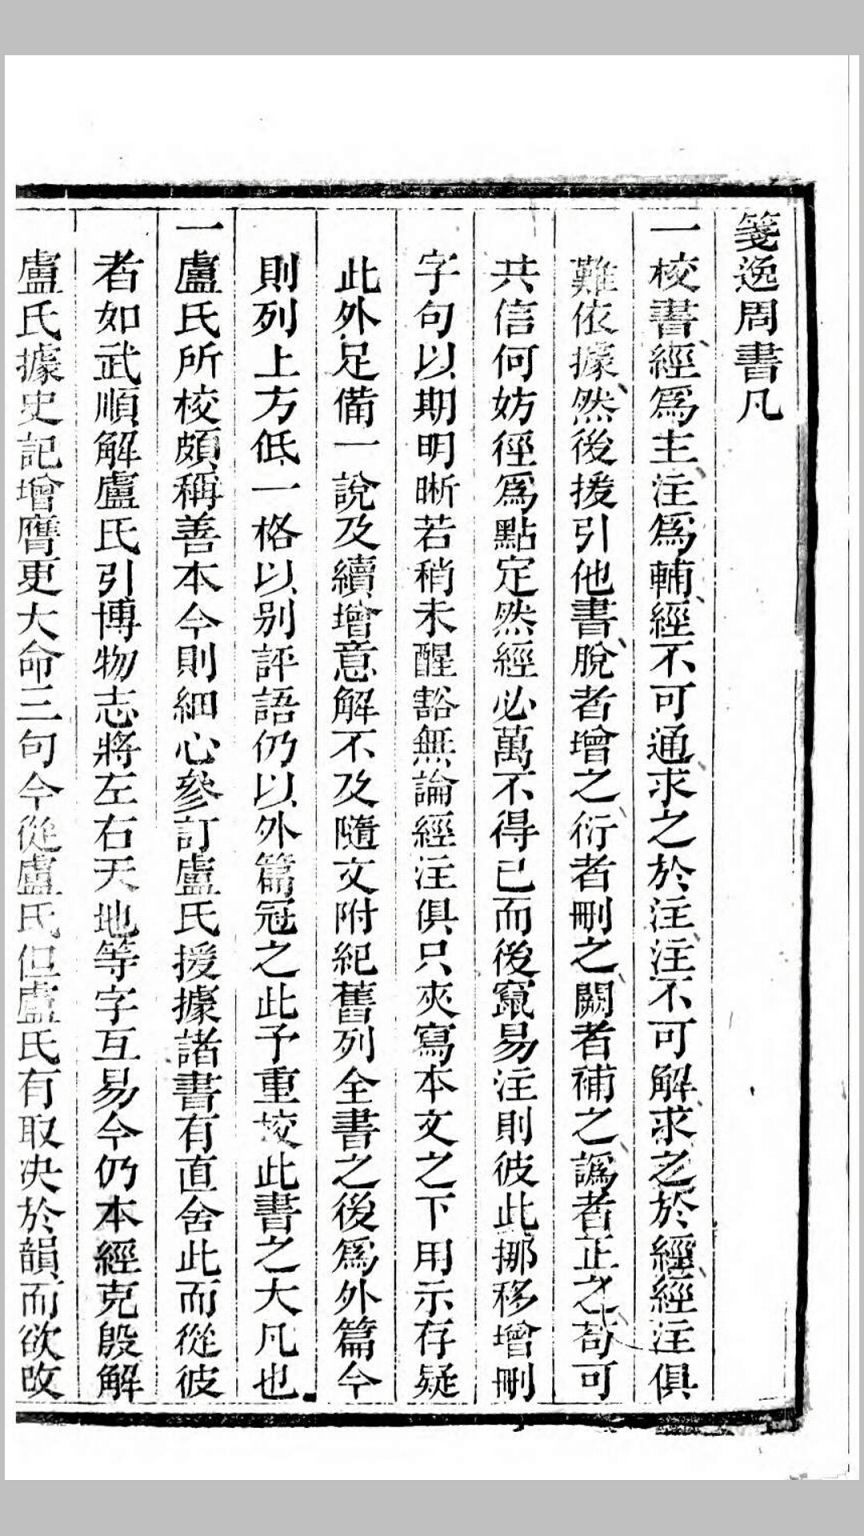 箋逸周書凡
一校書經爲主注爲輔經不可通求之於注注不可解求之於經經注俱
難依據然後援引他書脫者增之衍者刪之闕者補之譌者正之苟可
共信何妨徑爲點定然經必萬不得已而後竄易注則彼此挪移增刪
字句以期明晰若稍未醒豁無論經注俱只夾寫本文之下用示存疑
此外足備一說及續增意解不及隨文附紀舊列全書之後爲外篇今
則列上方低一格以别評語仍以外篇冠之此予重挍此書之大凡也
一盧氏所校頗稱善本今則細心參訂盧氏援據諸書有直舍此而從彼
者如武順解盧氏引博物志將左右天地等字互易今仍本經克殷解
盧氏據史記增膺更大命三句今從盧氏但盧氏有取决於韻而欲改